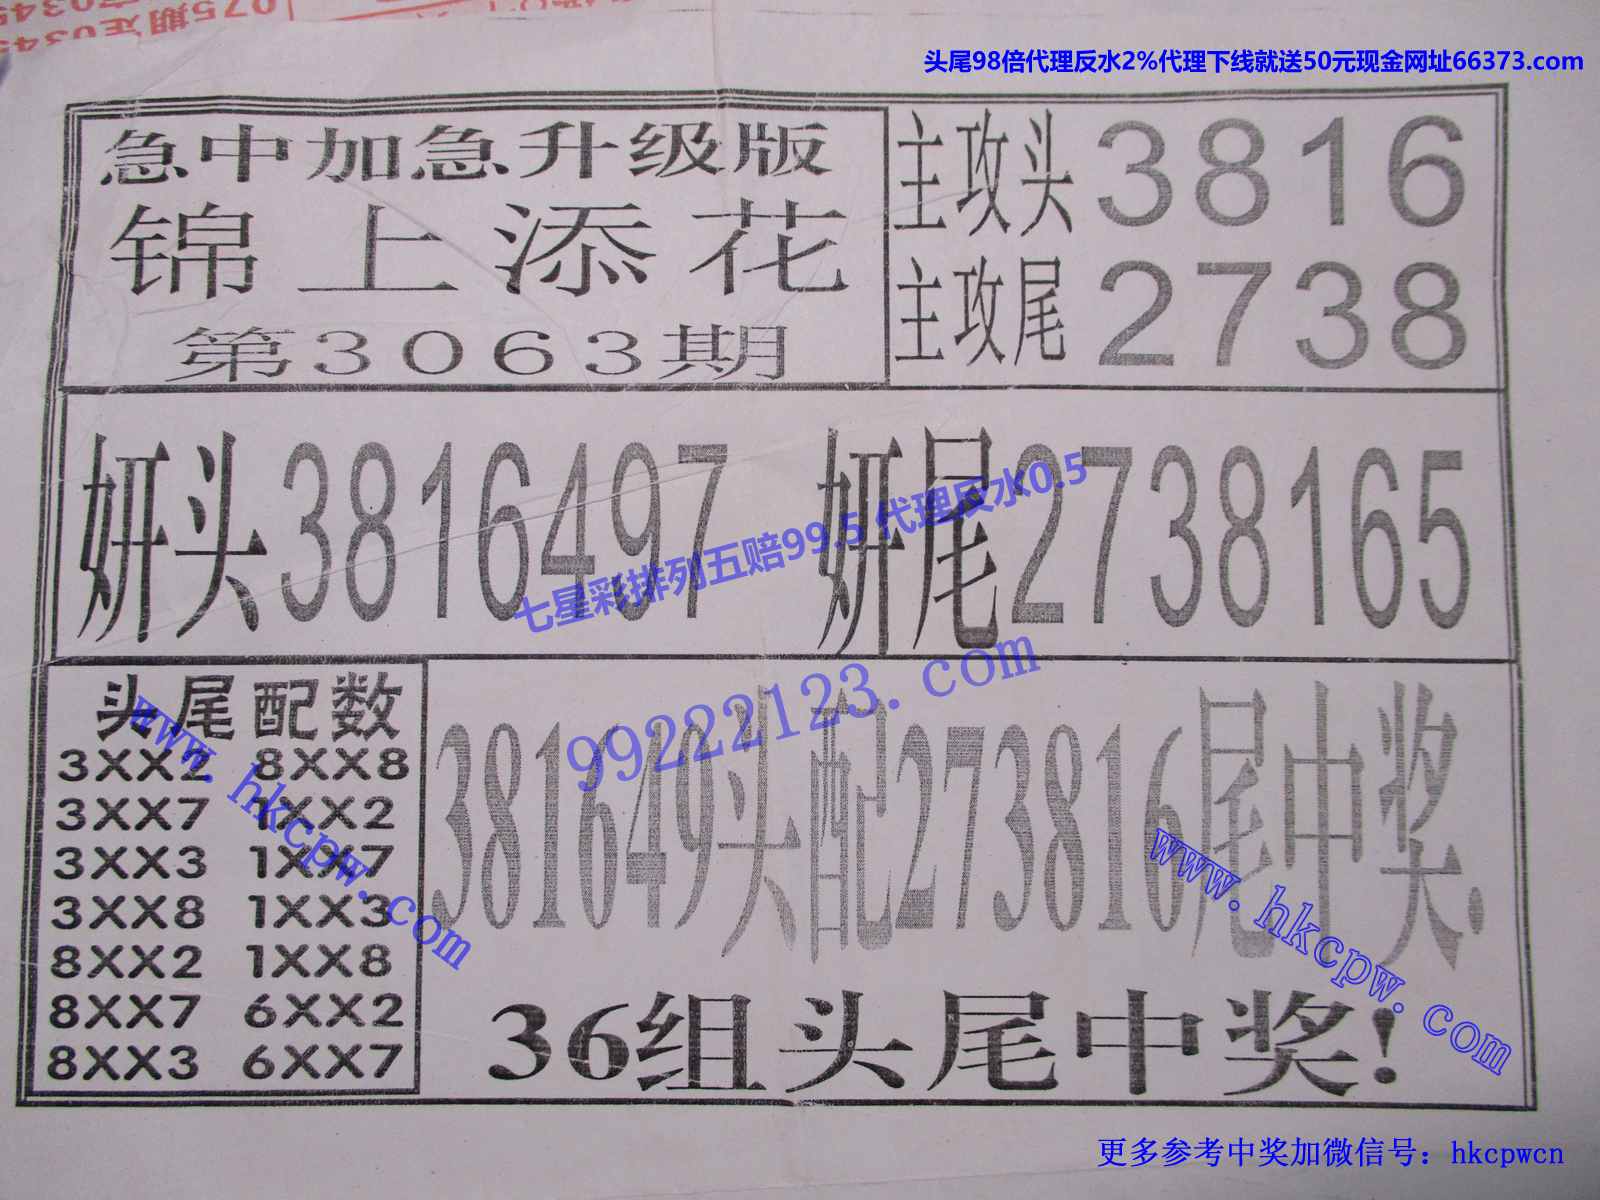 075期定0345
头尾98倍代理反水2%代理下线就送50元现金网址66373.com
急中加急升级版
锦上添花
第3063期
主攻头3816
主攻尾2738
妍头3816497
妍尾2738165
七星彩排列五赔99.5 代理反水0.5
99222123.com
头尾配数
3XX2 8XX8
3XX7 1XX2
3XX3 1XX7
3XX8 1XX3
8XX2 1XX8
8XX7 6XX2
8XX3 6XX7
www.hkcpw.com
381649头配273816尾中奖.
www.hkcpw.com
36组头尾中奖!
更多参考中奖加微信号：hkcpwcn